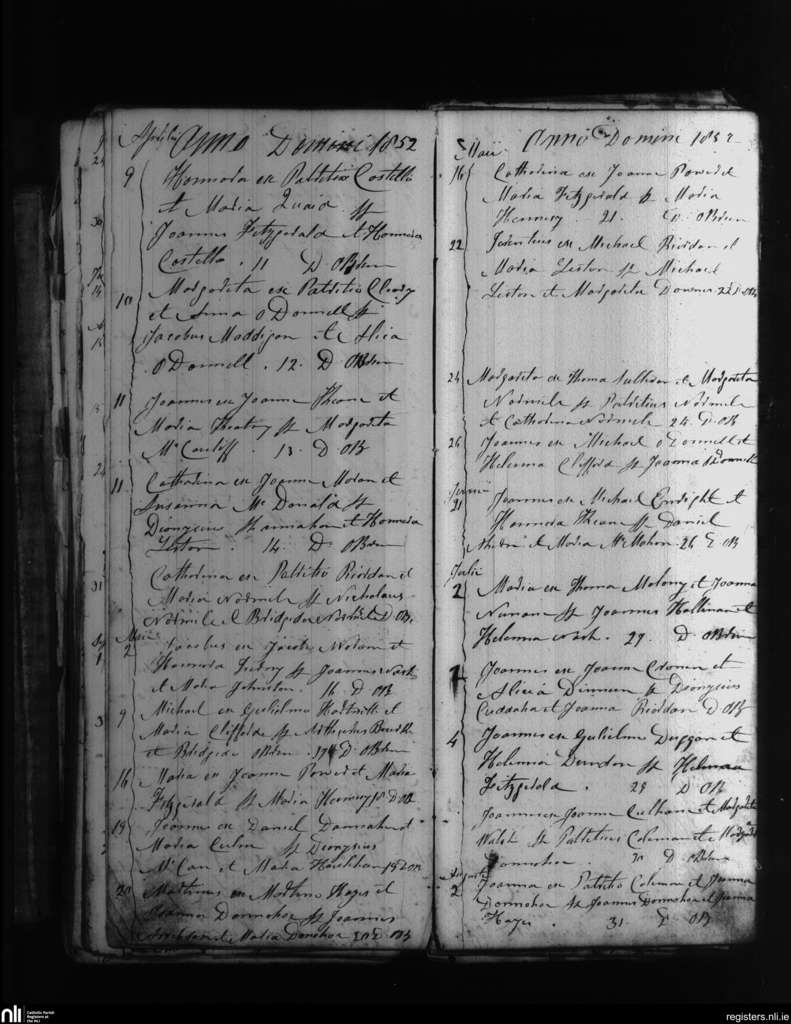 Aprilis Anno Domini 1852
9 Honnora ex Patritio Costello
et Maria Quaid Ss
Joannes Fitzgerald et Honnora
Costello . 11 D OBrien
10 Margarita ex Patritio Cleary
et Anna O Donnell Ss
Jacobus Maddigan et Alicia
O Donnell . 12 . D OBrien
11 Joannes ex Joanne Sheane et
Maria Ss Margarita
Mc . 13 . D OB
11 Catharina ex Joanne Moran et
Susanna Mc Donald Ss
Dionysius Hannahan et Honnora
Liston . 14 . D OBrien
Catharina ex Patritio Riordan et
Maria Normile Ss Nicholaus
Normile et Bridgida Normile D OB
Maii
2 Jacobus ex Jacobo Nolan et
Honnora Ss Joannes Nash
et Maria Johnston . 16 D OB
9 Michael ex Gulielmo et
Maria Clifford Ss
et Bridgida OBrien . 17 D OBrien
16 Maria ex Joanne Power et Maria
Fitzgerald Ss Maria Hennesy 18 D OB
19 Joanna ex Daniel et
Maria Ss Dionysius
Mc et Maria 19 D OB
20 Martinus ex Martino Hayes et
Joanna Donnohoe Ss Joannes
et Maria Donohoe 20 D OB
Maii Anno Domini 1852
16 Catharina ex Joanne Power et
Maria Fitzgerald Ss Maria
Hennesy . 21 . D OBrien
22 ex Michael Riordan et
Maria Liston Ss Michael
Liston et Margarita Downes 22 D OB
24 Margarita ex Thoma Sullivan et Margarita
Normile Ss Patritius Normile
et Catharina Normile 24 . D OB
26 Joannes ex Michael O Donnell et
Helenna Clifford Ss Joanna O Donnell
Junii
21 Joannes ex Michael Enright et
Honnora Sheane Ss Daniel
et Maria Mc Mahon . 26 D OB
Julii
2 Maria ex Thoma Molony et Joanna
Nunan Ss Joannes Hallinan et
Helenna Nash . 27 . D OBrien
Joannes ex Joanne Cronin et
Alicia Dinneen Ss Dionysius
Cuddaha et Joanna Riordan D OB
4 Joannes ex Gulielmo Duggan et
Helenna Dundon Ss Helenna
Fitzgerald . 29 D OB
Joannes ex Joanne Culhane et Margarita
Walsh Ss Patritius Coleman et Margarita
Donnohoe . 30 D OBrien
Augusti
2 Joanna ex Patritio Coleman et Joanna
Donnohoe Ss Joannes Donnohoe et Joanna
Hayes . 31 . D OB
nli
Catholic Parish
Registers at
the NLI
registers.nli.ie